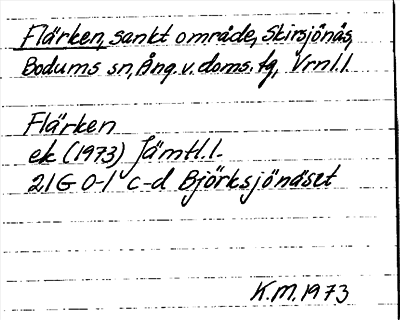 Flärken, sankt område, Skirsjönäs,
Bodums sn, Ång. v. doms. tg, Vrnl. l.
Flärken
ek (1973) Jämtl. l.
21G 0-1 c-d Björksjönäset
K.M. 1973